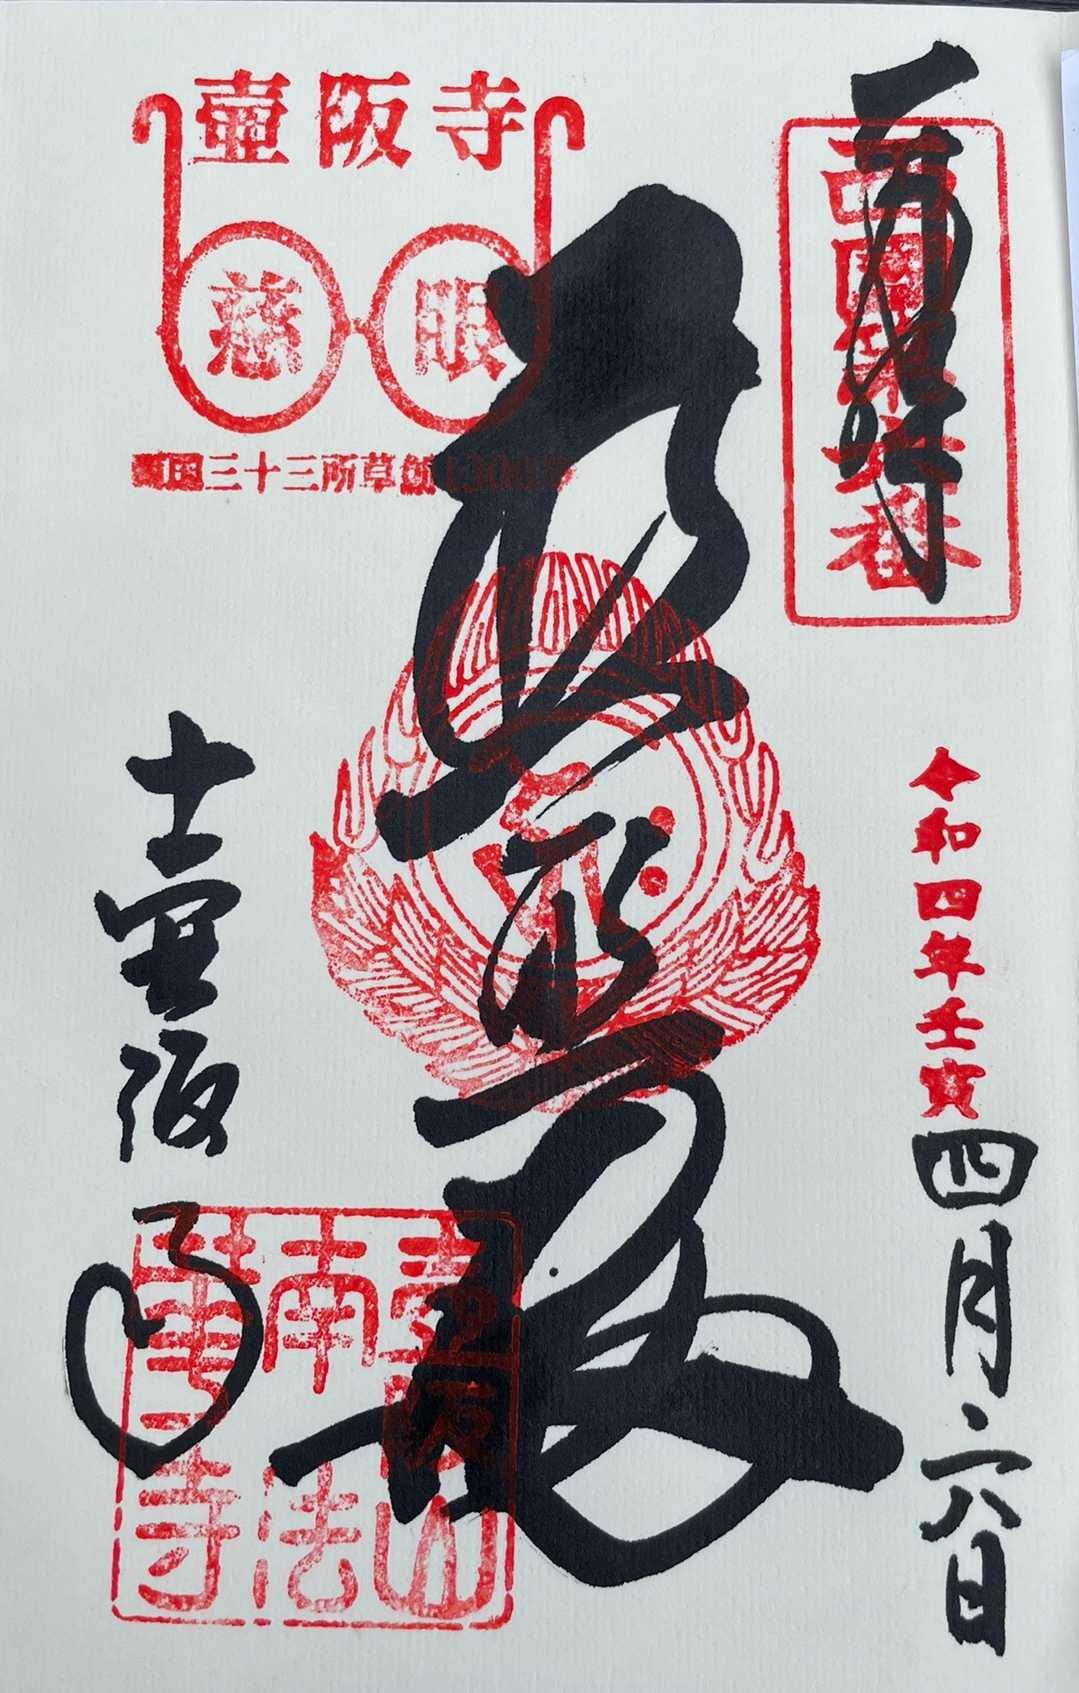 奉拝
西国第六番
令和四年壬寅
四月二八日
普照殿
壷阪寺
慈眼
西国三十三所草創1300年
壷阪寺
壷阪山
南法
華寺